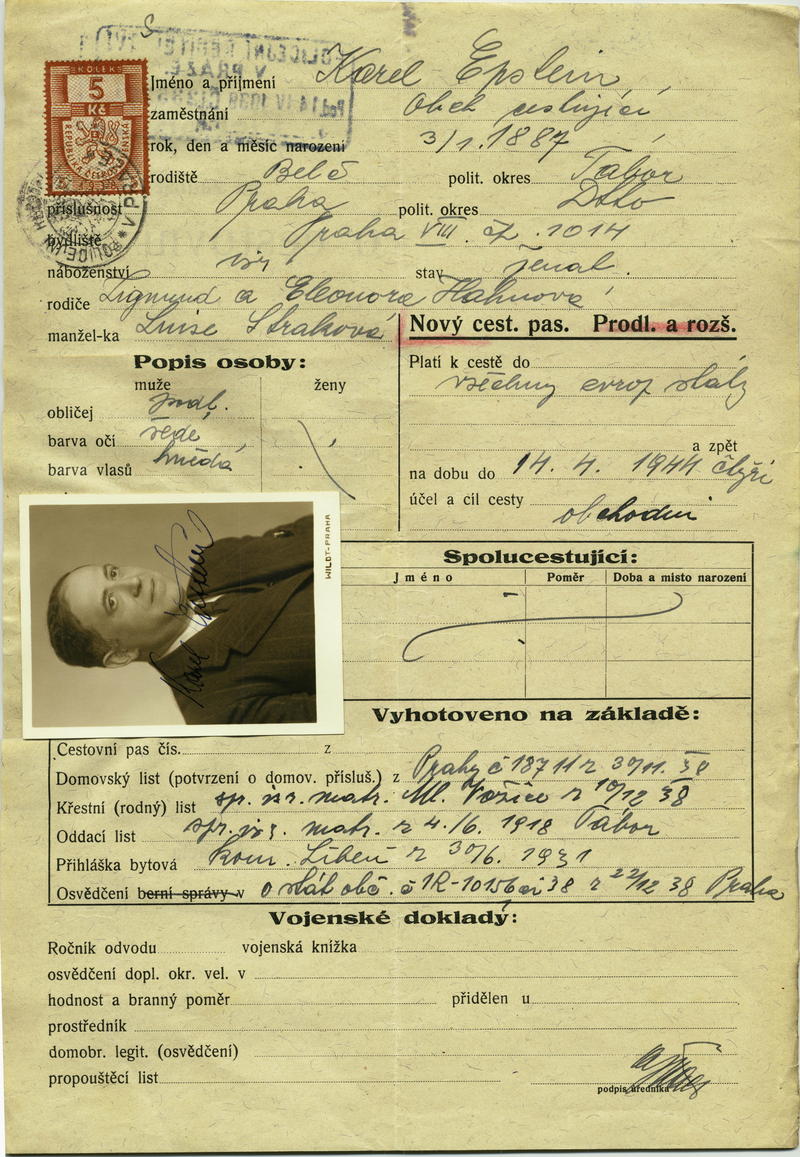 KOLEK
5
Kč
REPUBLIKA ČESKOSLOVENSKÁ
Jméno a příjmení Karel Epstein
zaměstnání Obch cestující
rok, den a měsíc narození 3/1. 1887
rodiště Belč polit. okres Tábor
příslušnost Praha polit. okres Dtto
bydliště Praha VIII. čp. 1014
náboženství isr stav ženat.
rodiče Zigmund a Eleonora Hahnová
manžel-ka Luise Straková
Nový cest. pas. Prodl. a rozš.
Popis osoby:
muže ženy
obličej podl.
barva očí šedé
barva vlasů hnědá
Platí k cestě do
všechny evrop státy
a zpět
na dobu do 14. 4. 1944 čtyři
účel a cíl cesty
obchodní
WILDT-PRAHA
Karel Epstein
Spolucestující:
Jméno Poměr Doba a misto narození
Vyhotoveno na základě:
Cestovní pas čís. z
Domovský list (potvrzení o domov. přísluš.) z Prahy č 18711 z 30/11. 38
Křestní (rodný) list sp. isr. matr. Ml. Vožice z 10/12 38
Oddací list spr. isr. matr. z 4./6. 1918 Tábor
Přihláška bytová kom. Libeň z 30/6. 1931
Osvědčení berní správy v o stát obč. č 1R-10156 ai 38 z 22/12 38 Praha
Vojenské doklady:
Ročník odvodu vojenská knížka
osvědčení dopl. okr. vel. v
hodnost a branný poměr přidělen u
prostředník
domobr. legit. (osvědčení)
propouštěcí list
podpis úředníka